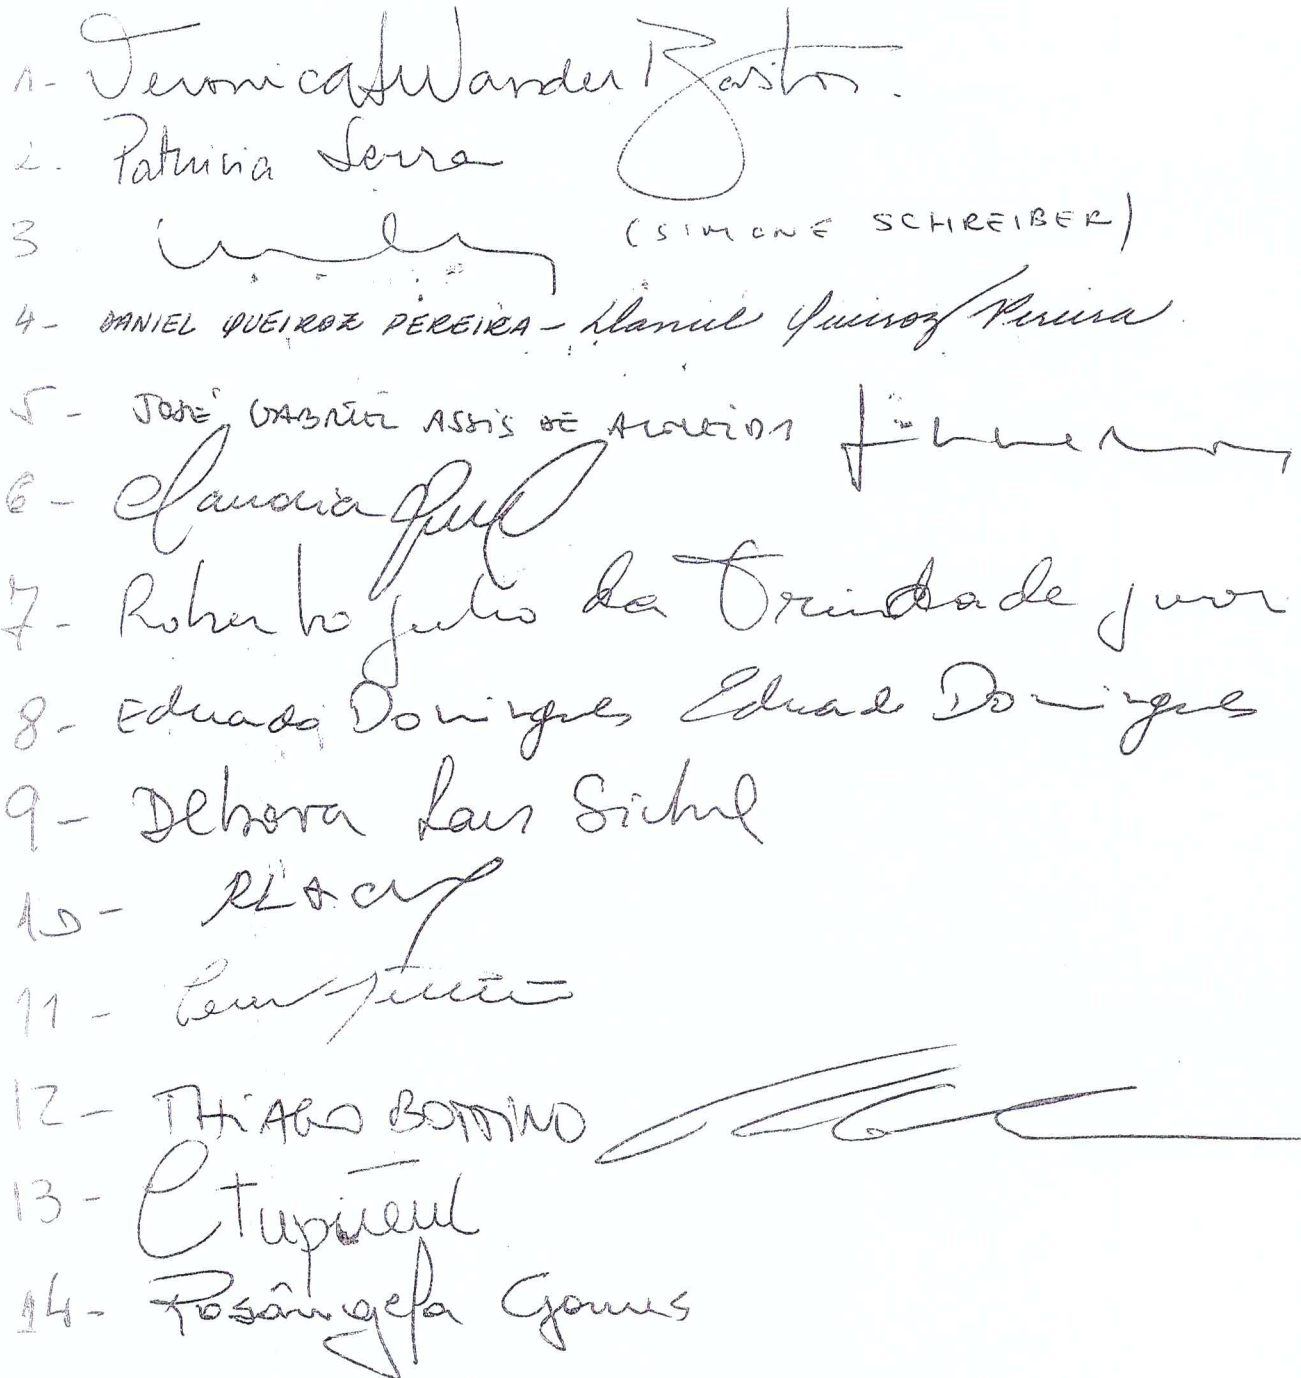 1- Veronica Wander Bastos.
2. Patricia Serra
3 (SIMONE SCHREIBER)
4- DANIEL QUEIROZ PEREIRA - Daniel Queiroz Pereira
5- JOSÉ GABRIEL ASSIS DE ALMEIDA
6- Claudia
7- Roberto Julio da Trindade Junior
8- Eduardo Domingues Eduardo Domingues
9- Debora Lacs Sichel
10-
11-
12- THIAGO BOTTINO
13-
14- Rosângela Gomes